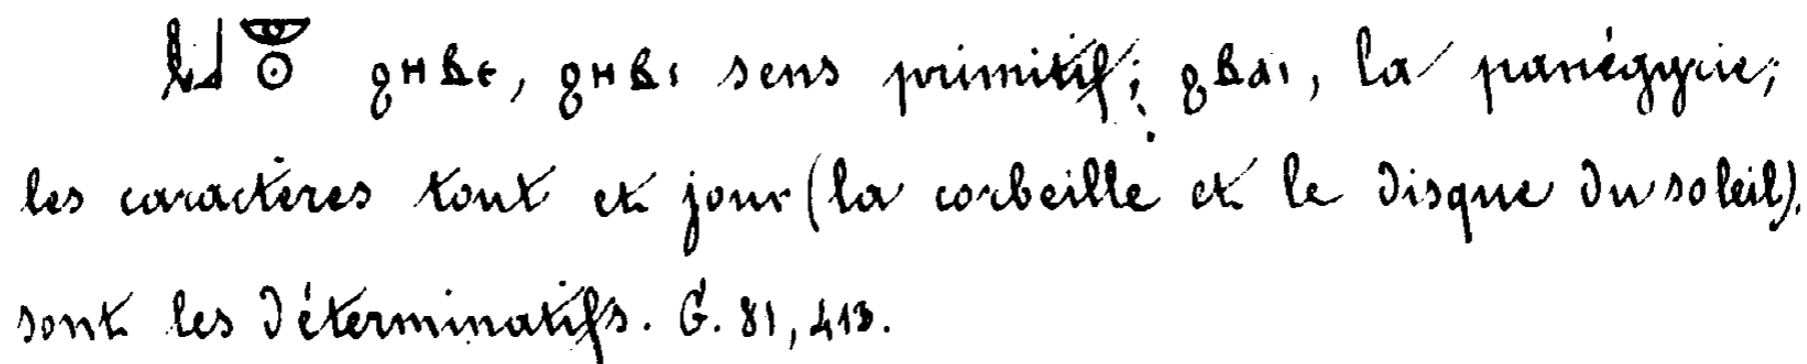 𓎛𓃀𓎱𓇳 ϩⲏⲃⲉ, ϩⲏⲃⲓ sens primitif; ϩⲃⲁⲓ, la panégyrie;
les caractères tout et jour (la corbeille et le disque du soleil).
sont les déterminatifs. G. 81, 413.